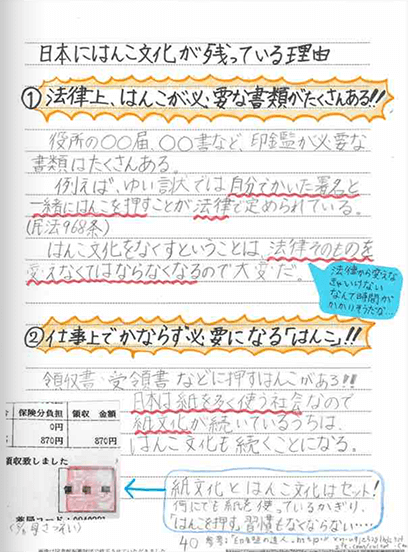 日本にはんこ文化が残っている理由
①法律上、はんこが必要な書類がたくさんある!!
役所の〇〇届、〇〇書など、印鑑が必要な
書類はたくさんある。
例えば、ゆい言状では自分でかいた署名と
一緒にはんこを押すことが法律で定められている。
(民法968条)
はんこ文化をなくすということは、法律そのものを
変えなくてはならなくなるので大変だ。
法律から変えな
きゃいけない
なんて時間が
かかりそうだな
②仕事上でかならず必要になる「はんこ」!!
領収書・受領書などに押すはんこがある!!
日本は紙を多く使う社会なので
紙文化が続いているうちは、
はんこ文化も続くことになる。
保険分負担 領収 金額
0円
870円 870円
領収致しました
領収印
紙文化とはんこ文化はセット!
何にでも紙を使っているかぎり、
「はんこを押す」習慣もなくならない……
40